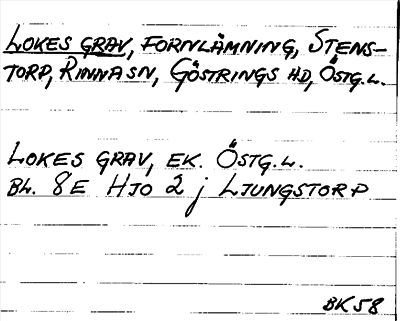 LOKES GRAV, FORNLÄMNING, STENS-
TORP, RINNA SN, GÖSTRINGS HD, ÖSTG.L.
LOKES GRAV, EK. ÖSTG.L.
BL. 8E HJO 2 j LJUNGSTORP
BK 58